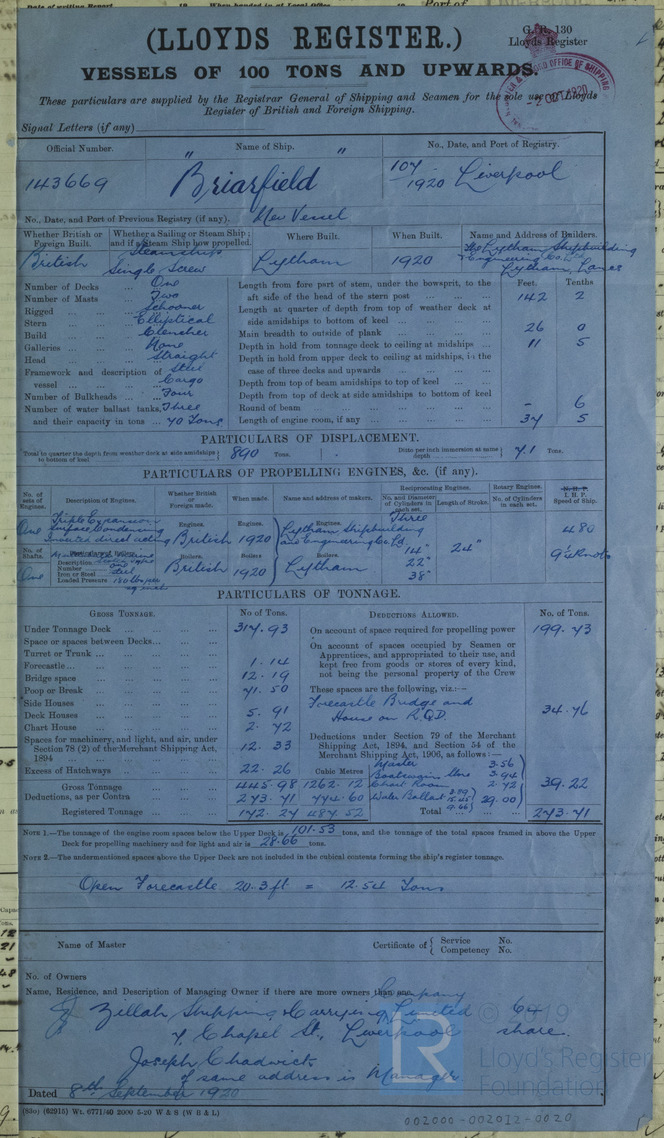 (LLOYDS REGISTER.)
G. R. 130
Lloyds Register
VESSELS OF 100 TONS AND UPWARDS.
These particulars are supplied by the Registrar General of Shipping and Seamen for the sole use of Lloyds
Register of British and Foreign Shipping.
OFFICE OF SHIPPING
2 OCT 1920
Signal Letters (if any)
Official Number. Name of Ship. No., Date, and Port of Registry.
143669 " Briarfield " 107/1920 Liverpool
No., Date, and Port of Previous Registry (if any). New Vessel
Whether British or Foreign Built. Whether a Sailing or Steam Ship; and if a Steam Ship how propelled. Where Built. When Built. Name and Address of Builders.
British Steamship Single Screw Lytham 1920 The Lytham Shipbuilding & Engineering Co. Ltd Lytham, Lancs
Number of Decks One
Number of Masts Two
Rigged Schooner
Stern Elliptical
Build Clencher
Galleries None
Head Straight
Framework and description of vessel Steel Cargo
Number of Bulkheads Four
Number of water ballast tanks, Three
and their capacity in tons 40 Tons
Feet. Tenths
Length from fore part of stem, under the bowsprit, to the aft side of the head of the stern post 142 2
Length at quarter of depth from top of weather deck at side amidships to bottom of keel
Main breadth to outside of plank 26 0
Depth in hold from tonnage deck to ceiling at midships 11 5
Depth in hold from upper deck to ceiling at midships, in the case of three decks and upwards
Depth from top of beam amidships to top of keel
Depth from top of deck at side amidships to bottom of keel
Round of beam - 6
Length of engine room, if any 34 5
PARTICULARS OF DISPLACEMENT.
Total to quarter the depth from weather deck at side amidships to bottom of keel 890 Tons. Ditto per inch immersion at same depth 7.1 Tons.
PARTICULARS OF PROPELLING ENGINES, &c. (if any).
No. of sets of Engines. Description of Engines. Whether British or Foreign made. When made. Name and address of makers. Reciprocating Engines. No. and Diameter of Cylinders in each set. Length of Stroke. Rotary Engines. No. of Cylinders in each set. N. H. P. I. H. P. Speed of Ship.
One Triple Expansion Surface Condensing Inverted direct acting Engines. British Engines. 1920 Engines. Lytham Shipbuilding and Engineering Co Ld Three 14" 22" 38" 24" 480
No. of Shafts. One Description Number one Iron or Steel Steel Loaded Pressure 180 lbs per sq inch Boilers. British Boilers 1920 Boilers. Lytham 9½ Knots
PARTICULARS OF TONNAGE.
GROSS TONNAGE. No. of Tons. DEDUCTIONS ALLOWED. No. of Tons.
Under Tonnage Deck 314.93
Space or spaces between Decks
Turret or Trunk
Forecastle 1.14
Bridge space 12.19
Poop or Break 71.50
Side Houses
Deck Houses 5.91
Chart House 2.72
Spaces for machinery, and light, and air, under Section 78 (2) of the Merchant Shipping Act, 1894 12.33
Excess of Hatchways 22.26
Cubic Metres
Gross Tonnage 445.98 1262.12
Deductions, as per Contra 273.71 774.60
Registered Tonnage 172.27 487.52
On account of space required for propelling power 199.73
On account of spaces occupied by Seamen or Apprentices, and appropriated to their use, and kept free from goods or stores of every kind, not being the personal property of the Crew
These spaces are the following, viz.:—
Forecastle Bridge and House on R.Q.D. 34.76
Deductions under Section 79 of the Merchant Shipping Act, 1894, and Section 54 of the Merchant Shipping Act, 1906, as follows:—
Master 3.56
Boatswains Store 3.94
Chart Room 2.72
Water Ballast 29.00
39.22
Total 273.71
NOTE 1.—The tonnage of the engine room spaces below the Upper Deck is 101.53 tons, and the tonnage of the total spaces framed in above the Upper
Deck for propelling machinery and for light and air is 28.66 tons.
NOTE 2.—The undermentioned spaces above the Upper Deck are not included in the cubical contents forming the ship's register tonnage.
Open Forecastle 20.3 ft = 12.54 Tons
Name of Master Certificate of { Service No. Competency No.
No. of Owners
Name, Residence, and Description of Managing Owner if there are more owners than one
Zillah Shipping & Carrying Company Limited 64
7 Chapel St., Liverpool share.
Joseph Chadwick
of same address is Manager
Dated 8th September 1920
(83o) (62915) Wt. 6771/40 2000 5-20 W & S (W B & L)
002000-002012-0020
© 2019
Lloyd's Register
Foundation